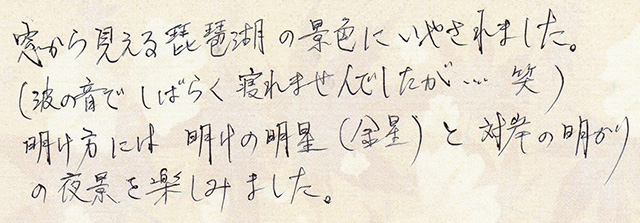 窓から見える琵琶湖の景色にいやされました。
(波の音でしばらく寝れませんでしたが… 笑)
明け方には 明けの明星(金星)と対岸の明かり
の夜景を楽しみました。